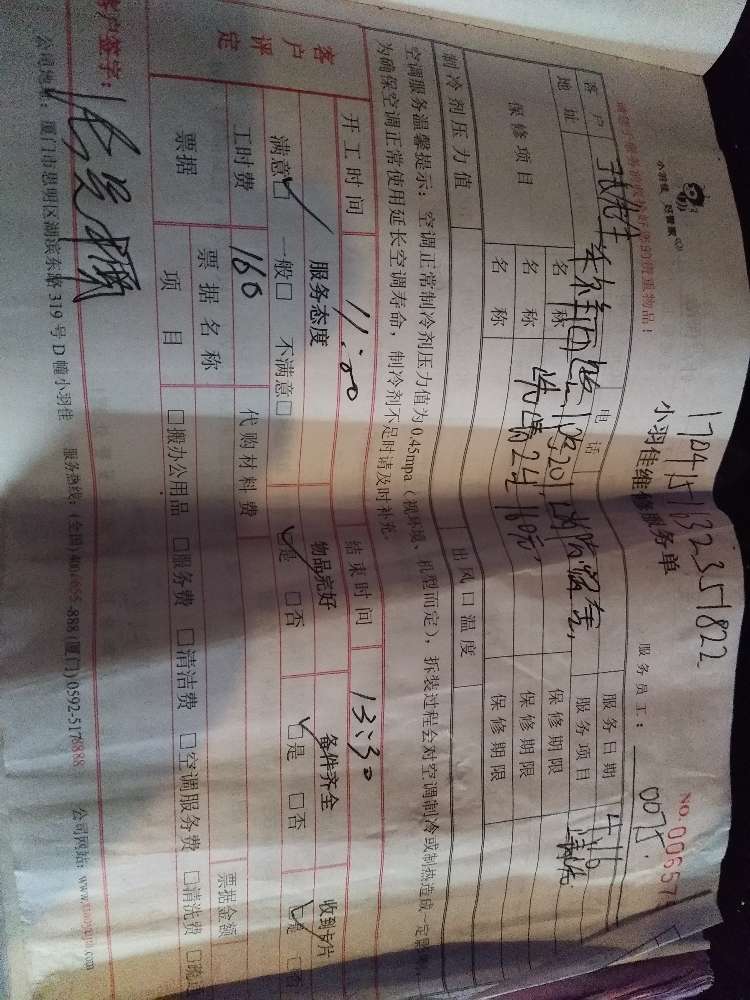 小羽佳 好管家
NO.00657
170415132351822
小羽佳维修服务单
服务员工: 0075.
请您于服务前收拾好您的贵重物品!
客户 张先生 电话 服务日期 4.16
地址 服务项目 清洗
保修项目 名称 保修期限
名称 洗清2台 160元, 保修期限
名称 保修期限
制冷剂压力值 出风口温度
空调服务温馨提示:空调正常制冷剂压力值为0.45mpa(视环境、机型而定),拆装过程会对空调制冷或制热造成一定影响,
为确保空调正常使用延长空调寿命,制冷剂不足时请及时补充。
开工时间 11:00 结束时间 13:30
客户评定 服务态度 物品完好 备件齐全 收到卡片
满意☑ 一般□ 不满意□ ☑是 □否 ☑是 □否 ☑是 □否
工时费 160 代购材料费
票据 票据名称 票据金额
项目 □搬办公用品 □服务费 □清洁费 □空调服务费 □清洗费
客户签字:
公司地址:厦门市思明区湖滨东路319号D幢小羽佳 服务热线:(全国) -888(厦门)0592-5178888 公司网站:www.